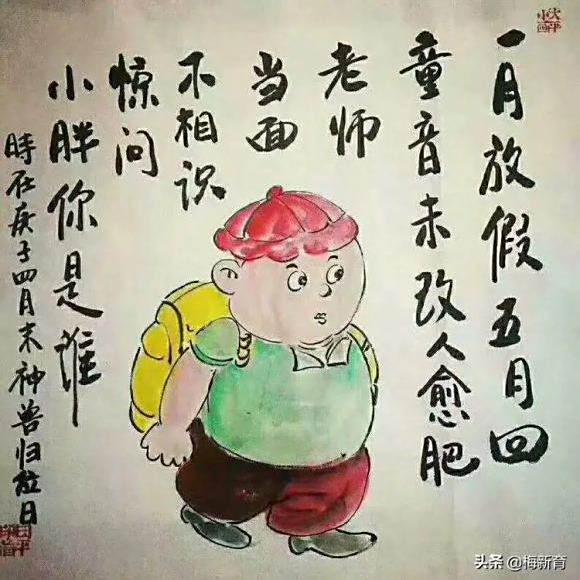 一月放假五月回
童音未改人愈肥
老师
当面
不相识
惊问
小胖你是谁
時在庚子四月末神兽归位日
头条 @梅新育